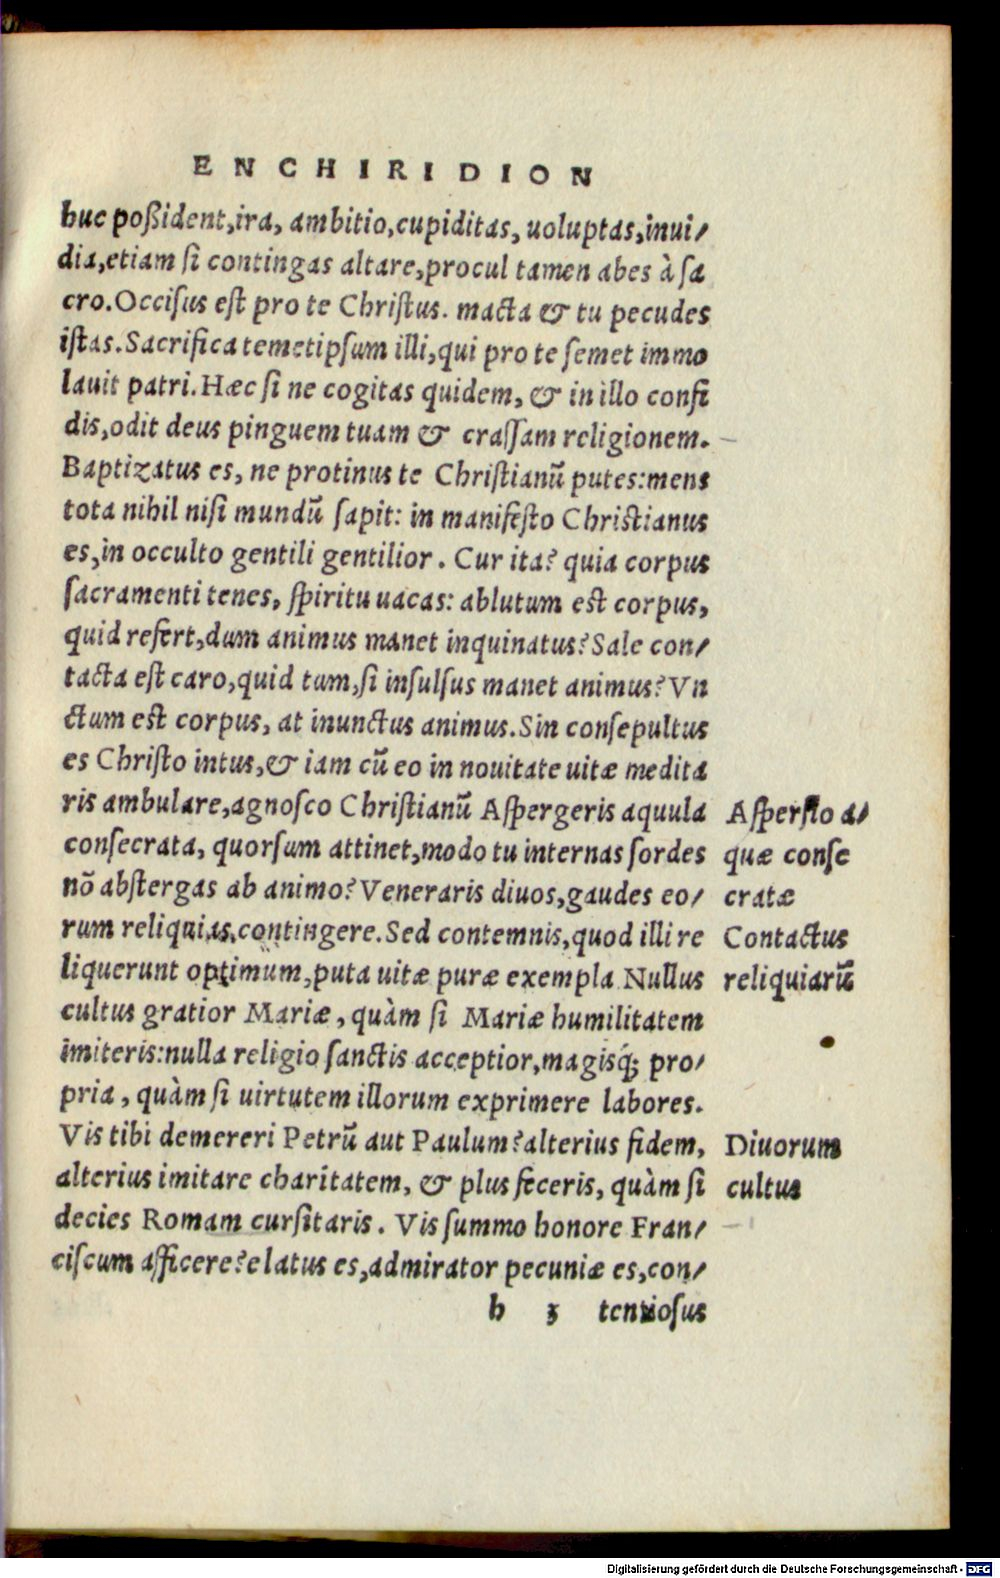 ENCHIRIDION
huc poßident,ira, ambitio,cupiditas, uoluptas,inui/
dia,etiam ſi contingas altare,procul tamen abes à ſa
cro.Occiſus eſt pro te Chriſtus. macta & tu pecudes
iſtas.Sacrifica temetipſum illi,qui pro te ſemet immo
lauit patri.Hæc ſi ne cogitas quidem, & in illo confi
dis,odit deus pinguem tuam & craſſam religionem.
Baptizatus es, ne protinus te Chriſtianũ putes:mens
tota nihil niſi mundũ ſapit: in manifeſto Chriſtianus
es,in occulto gentili gentilior. Cur ita? quia corpus
ſacramenti tenes, ſpiritu uacas: ablutum eſt corpus,
quid refert,dum animus manet inquinatus?Sale con/
tacta eſt caro,quid tum,ſi inſulſus manet animus?Vn
ctum eſt corpus, at inunctus animus.Sin conſepultus
es Chriſto intus,& iam cũ eo in nouitate uitæ medita
ris ambulare,agnoſco Chriſtianũ Aſpergeris aquula
conſecrata, quorſum attinet,modo tu internas ſordes
nõ abſtergas ab animo?Veneraris diuos,gaudes eo/
rum reliquias contingere.Sed contemnis,quod illi re
liquerunt optimum,puta uitæ puræ exempla Nullus
cultus gratior Mariæ, quàm ſi Mariæ humilitatem
imiteris:nulla religio ſanctis acceptior,magisq́; pro/
pria, quàm ſi uirtutem illorum exprimere labores.
Vis tibi demereri Petrũ aut Paulum?alterius fidem,
alterius imitare charitatem, & plus feceris, quàm ſi
decies Romam curſitaris. Vis ſummo honore Fran/
ciſcum afficere?elatus es,admirator pecuniæ es,con/
h 3 tentioſus
Aſperſio a/
quæ conſe
cratæ
Contactus
reliquiarũ
Diuorum
cultus
Digitalisierung gefördert durch die Deutsche Forschungsgemeinschaft - DFG